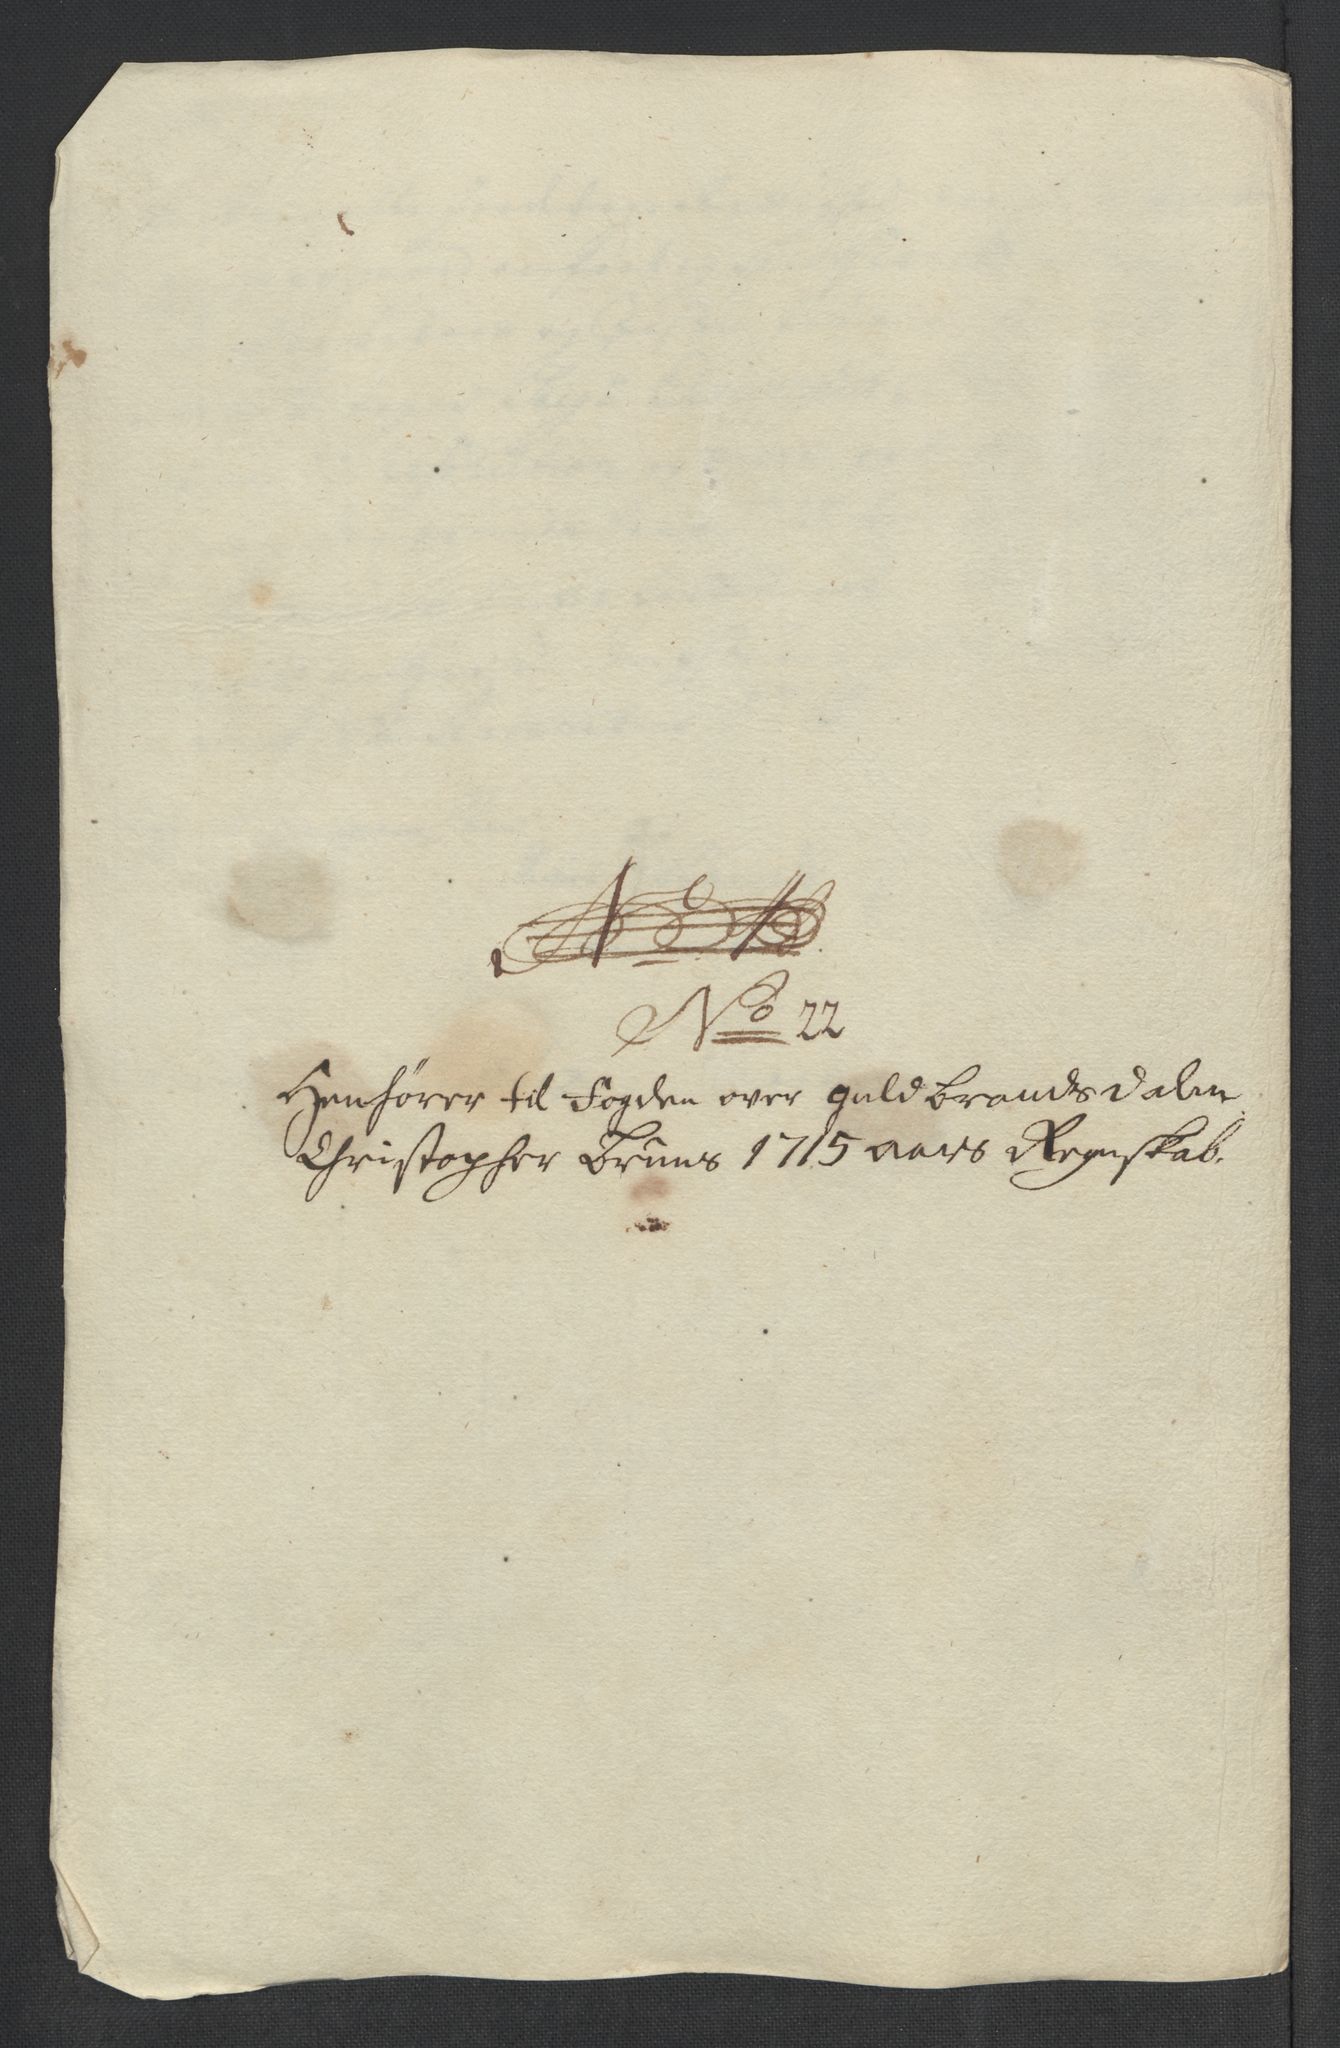 No 22
Henhörer til Fogden over Guldbrandsdalen
Christopher Bruuns 1715 aars Regnskab.